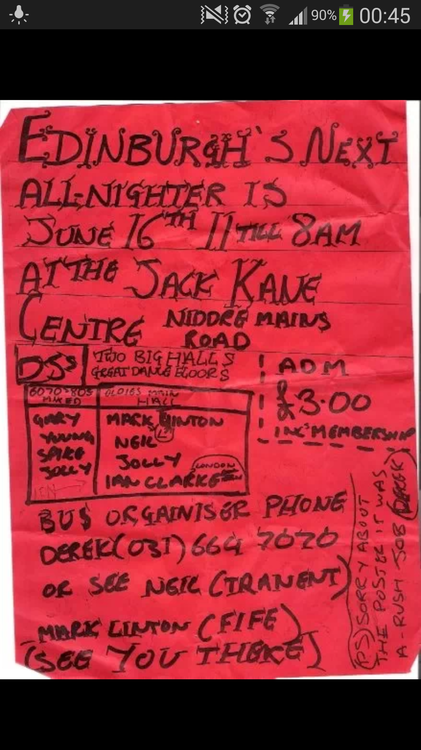 90% 00:45
EDINBURGH'S NEXT
ALL-NIGHTER IS
JUNE 16TH 11 TILL 8AM
AT THE JACK KANE
CENTRE NIDDRE MAINS
ROAD
DJS TWO BIG HALLS
GREAT DANCE FLOORS
ADM
£3.00
INC' MEMBERSHIP
60 70 80S
MIXED
GARY
YOUNG
SPIKE
JOLLY
OLDIES MAIN
HALL
MARK LINTON
NEIL
JOLLY
IAN CLARKE LONDON
BUS ORGAINISER PHONE
DEREK (031) 664 7070
OR SEE NEIL (TRANENT)
MARK LINTON (FIFE)
(SEE YOU THERE)
(PS) SORRY ABOUT
THE POSTER IT WAS
A-RUSH JOB (DEREK)